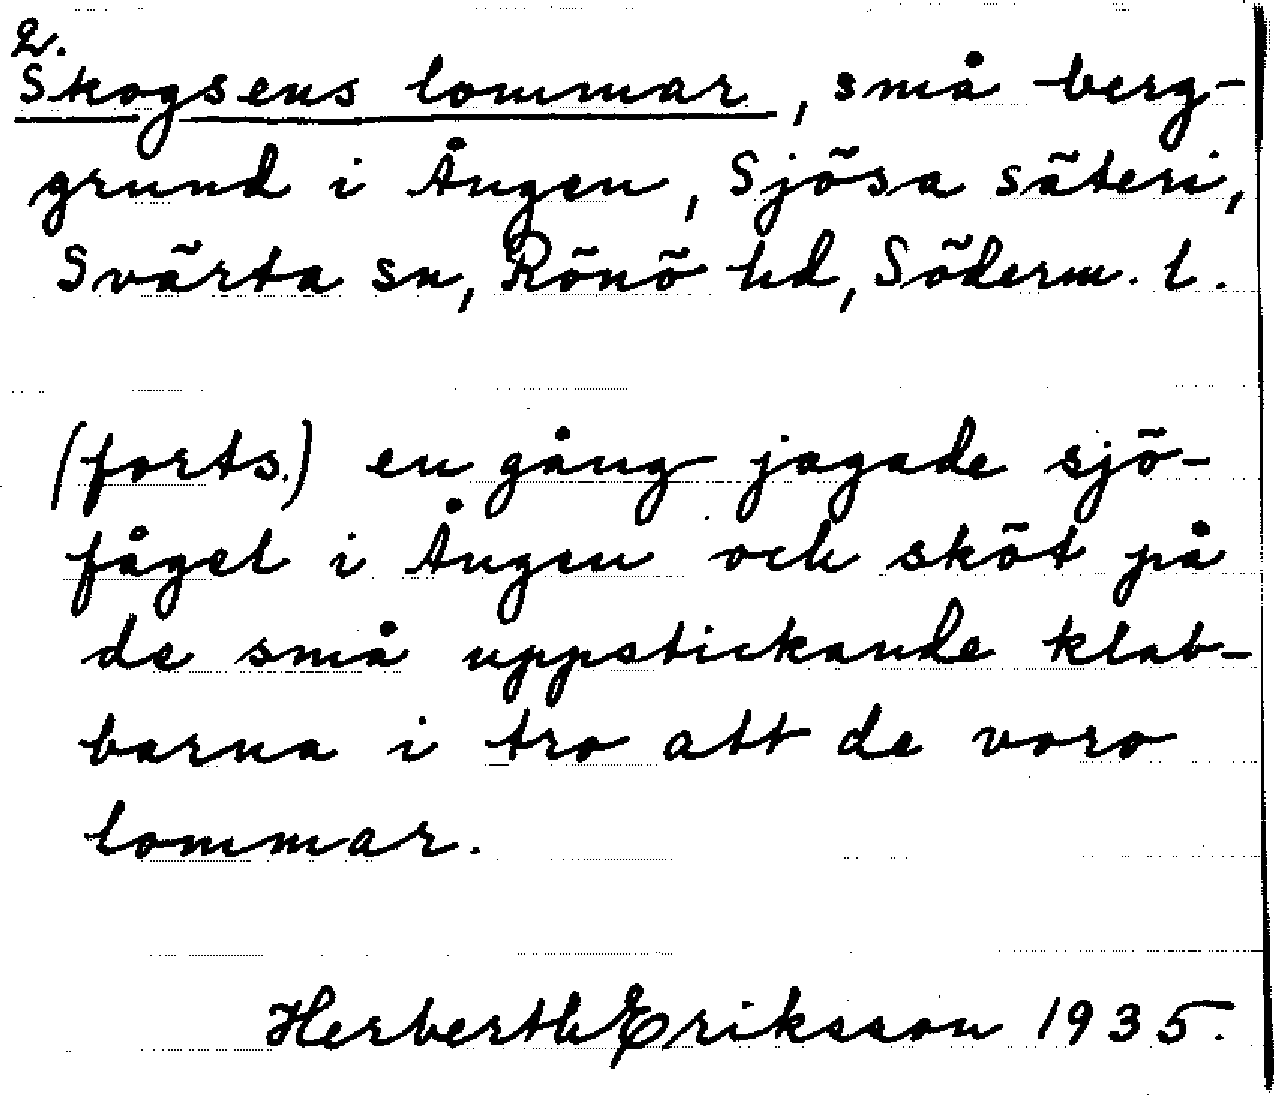 2.
Skogsens lommar, små berg-
grund i Ången, Sjösa säteri,
Svärta sn, Rönö hd, Söderm. l.
(forts.) en gång jagade sjö-
fågel i Ången och sköt på
de små uppstickande klab-
barna i tro att de voro
lommar.
Herberth Eriksson 1935.